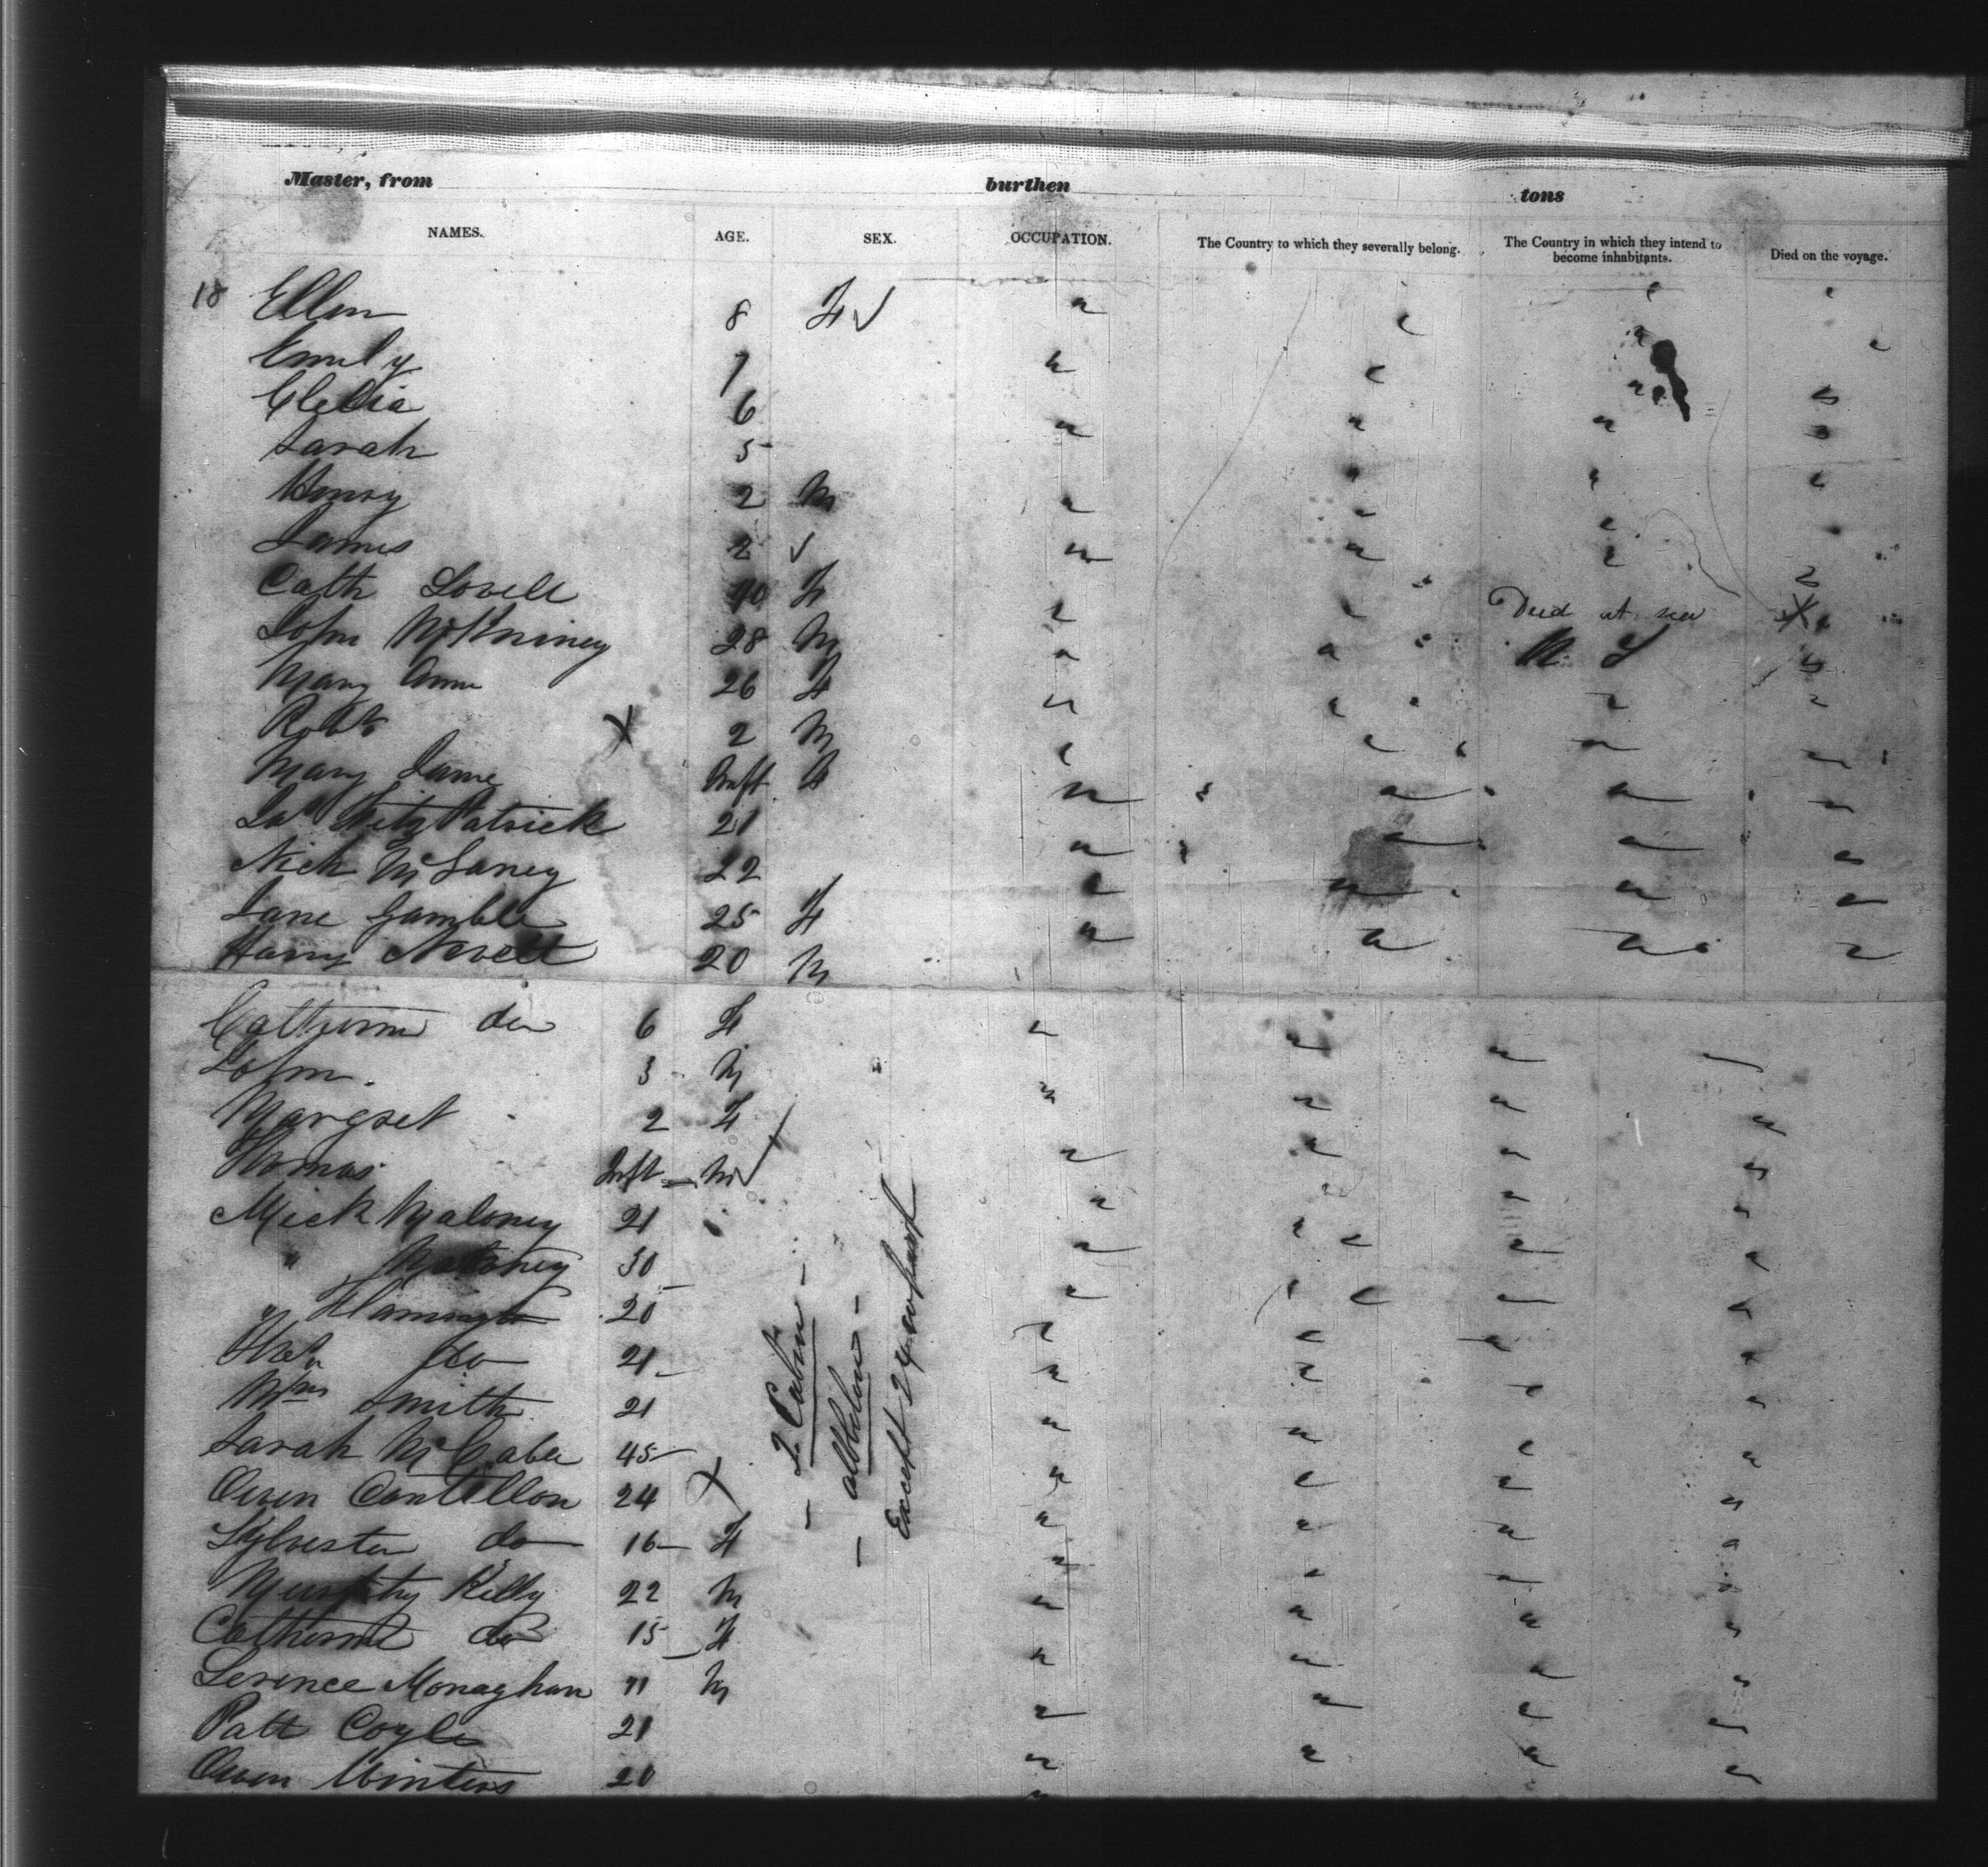 Master, from burthen tons
NAMES. AGE. SEX. OCCUPATION. The Country to which they severally belong. The Country in which they intend to become inhabitants. Died on the voyage.
18 Ellen 8 F ✓
Emily 7
Clelia 6
Sarah 5
Henry 2 M
James 2 ✓
Cath Lovell 40 F Died at sea X
John McKniney 28 M N Y
Mary Ann 26 F
Robt X 2 M
Mary Jane Inft F
Jas FitzPatrick 21
Nick McLaney 22
Jane Gamble 25 F
Harry Nevell 20 M
Catherine do 6 F
John 3 M
Margret 2 F
Thomas Inft M ✓
Mick Maloney 21
" Maloney 30
" 20
do 21
Wm Smith 21
Sarah McCabe 45
Owen Cantillon 24 X
Sylvester do 16 F
Murthy Kelly 22 M
Catherine do 15 F
Terence Monaghan 11 M
Patt Coyle 21
Owen Winters 20
2 Cabin
all below
Except 24 on poop